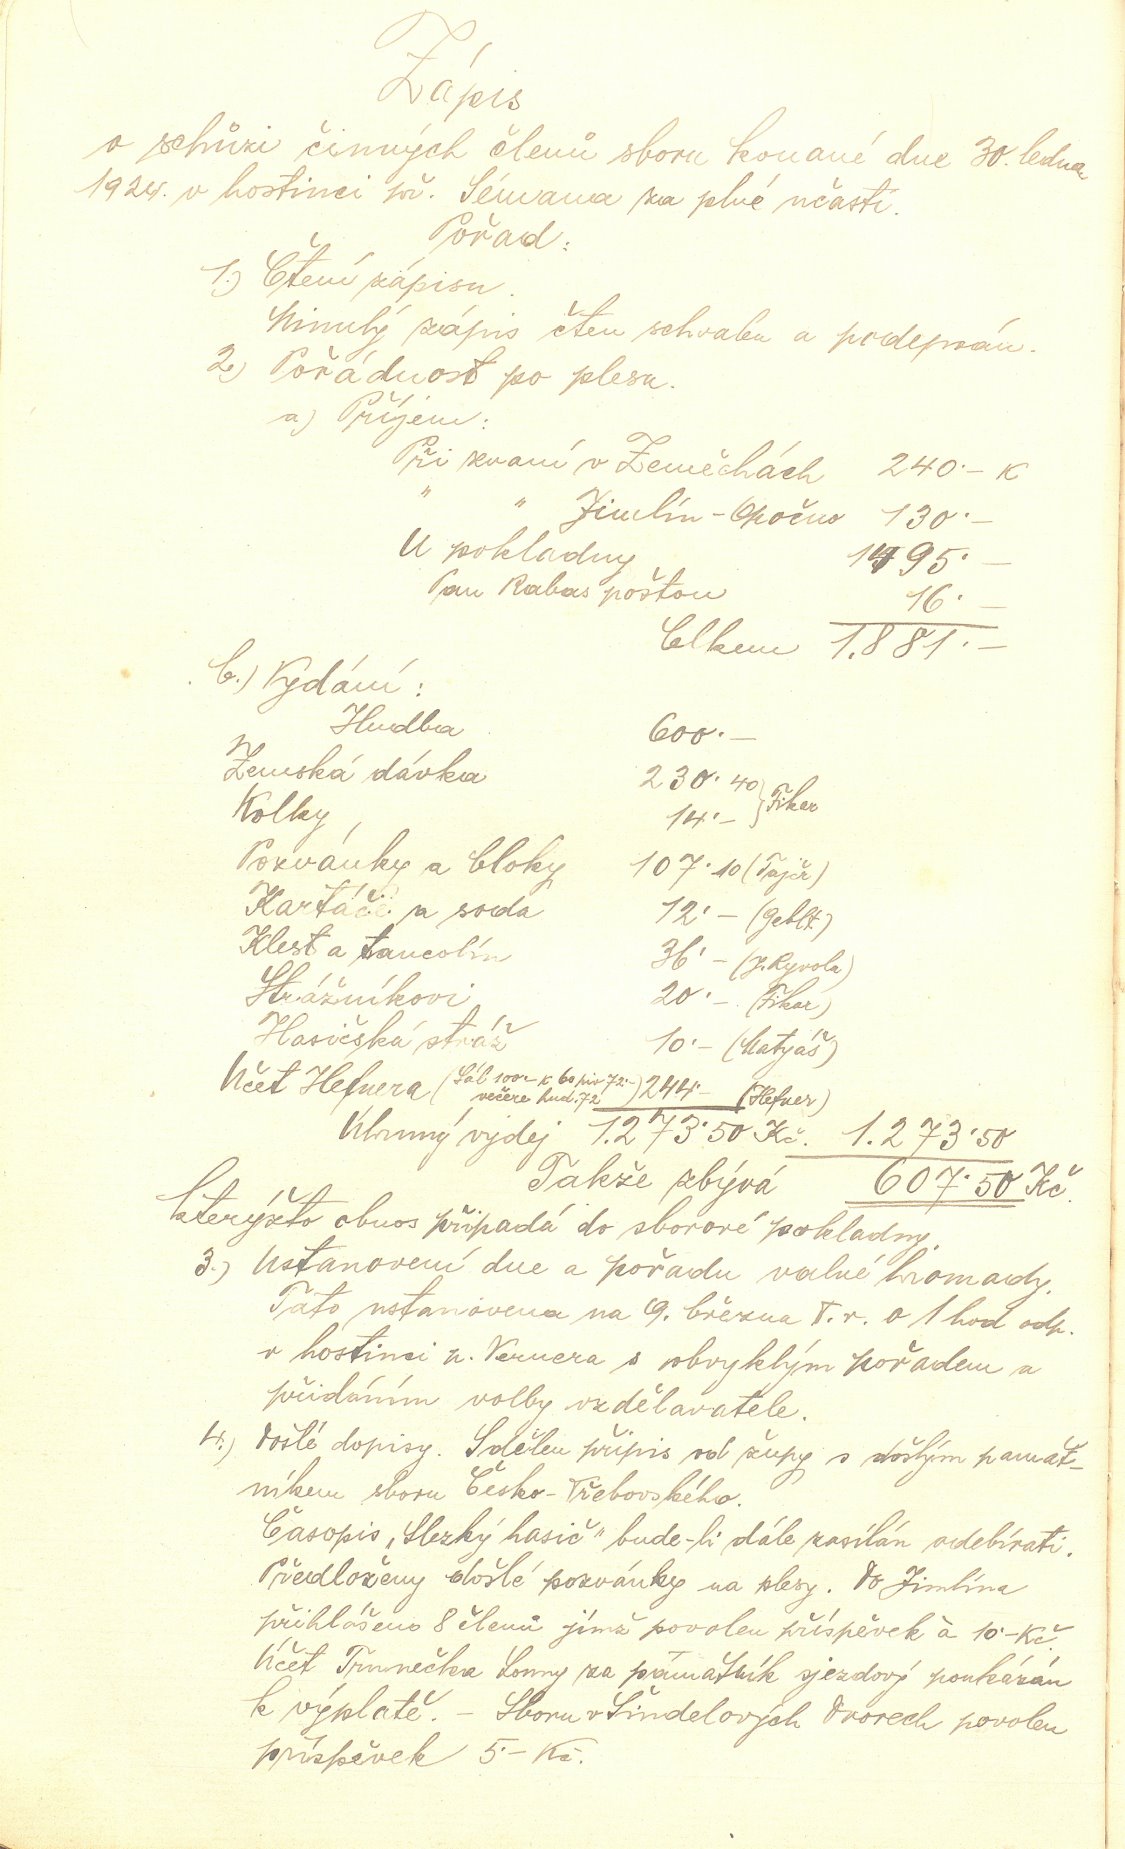 Zápis
o schůzi činných členů sboru konané dne 30. ledna
1924. v hostinci př. Sémana za plné účasti.
Pořad:
1.) Čtení zápisu.
Minulý zápis čten schválen a podepsán.
2.) Pořádnost po plesu.
a) Příjem:
Při zvaní v Zeměchách 240·– K
" " Jimlín – Opočno 130·–
U pokladny 1495·–
Pan Rabas poštou 16·–
Celkem 1.881·–
b.) Vydání:
Hudba 600·–
Zemská dávka 230·40 } Fikar
Kolky 14·–
Pozvánky a bloky 107·10 (Pajér)
Kartáče a soda 12·– (Geblt)
Klest a tancolín 36·– (J. Ryvola)
Strážníkovi 20·– (Fikar)
Hasičská stráž 10·– (Matyáš)
Účet Hefnera (Sál 100·– K 60 piv 72·– večeře hud. 72) 244·– (Hefner)
Úhrnný výdej 1.273·50 Kč. 1.273·50
Takže zbývá 607·50 Kč.
kterýžto obnos připadá do sborové pokladny.
3.) Ustanovení dne a pořadu valné hromady.
Tato ustanovena na 9. března t. r. o 1 hod odp.
v hostinci p. Vernera s obvyklým pořadem a
přidáním volby vzdělavatele.
4.) Došlé dopisy. Sdělen přípis od župy s došlým památ-
níkem sboru Česko-Třebovského.
Časopis „Slezký hasič" bude-li dále zasílán odebírati.
Předloženy došlé pozvánky na plesy. Do Jimlína
přihlášeno 8 členů jimž povolen příspěvek à 10·– Kč.
Účet Trunečka Louny za památník sjezdový poukázán
k výplatě. – Sboru v Šindelových Dvorech povolen
příspěvek 5·– Kč.